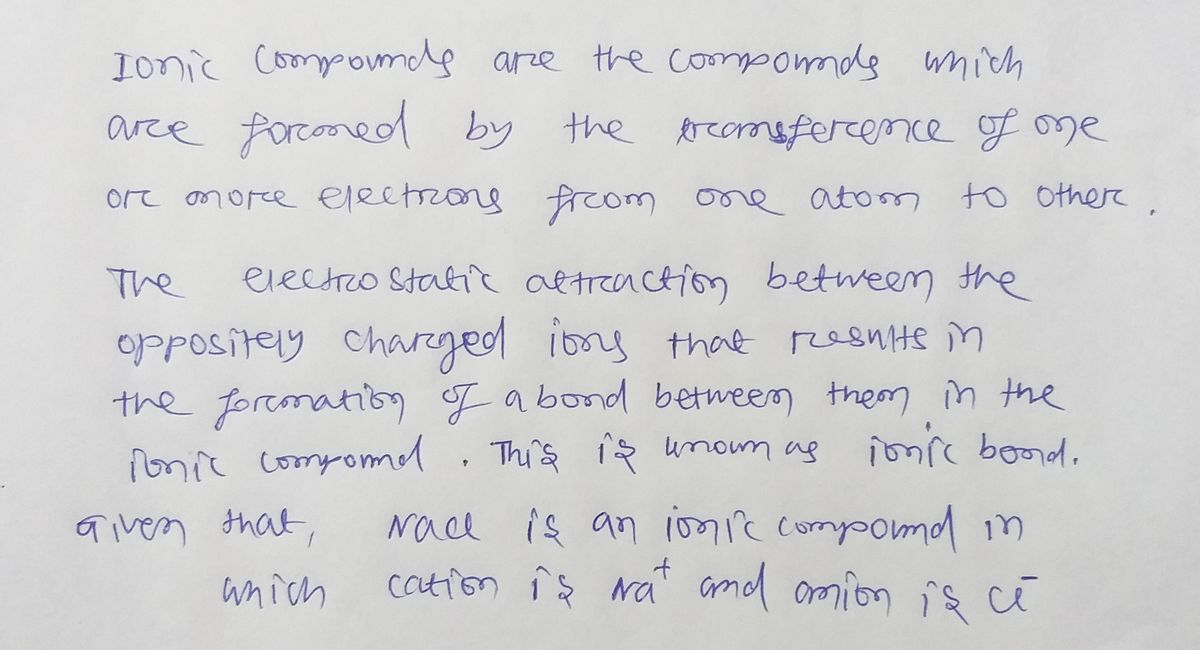 Ionic compounds are the compounds which
are formed by the transference of one
or more electrons from one atom to other.
The electrostatic attraction between the
oppositely charged ions that results in
the formation of a bond between them in the
ionic compound. This is known as ionic bond.
Given that, NaCl is an ionic compound in
which cation is Na⁺ and anion is Cl⁻